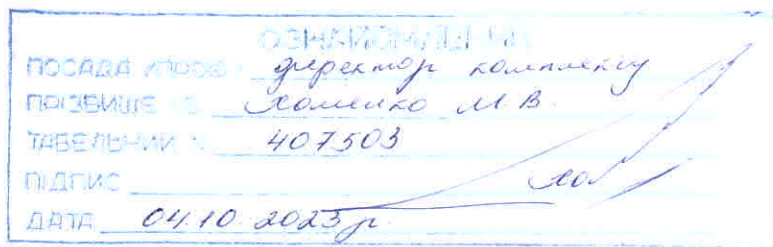 ОЗНАЙОМЛЕНИЙ
ПОСАДА директор комплексу
ПРІЗВИЩЕ Хоменко М.В.
ТАБЕЛЬНИЙ № 407503
ПІДПИС
ДАТА 04.10.2023 р.